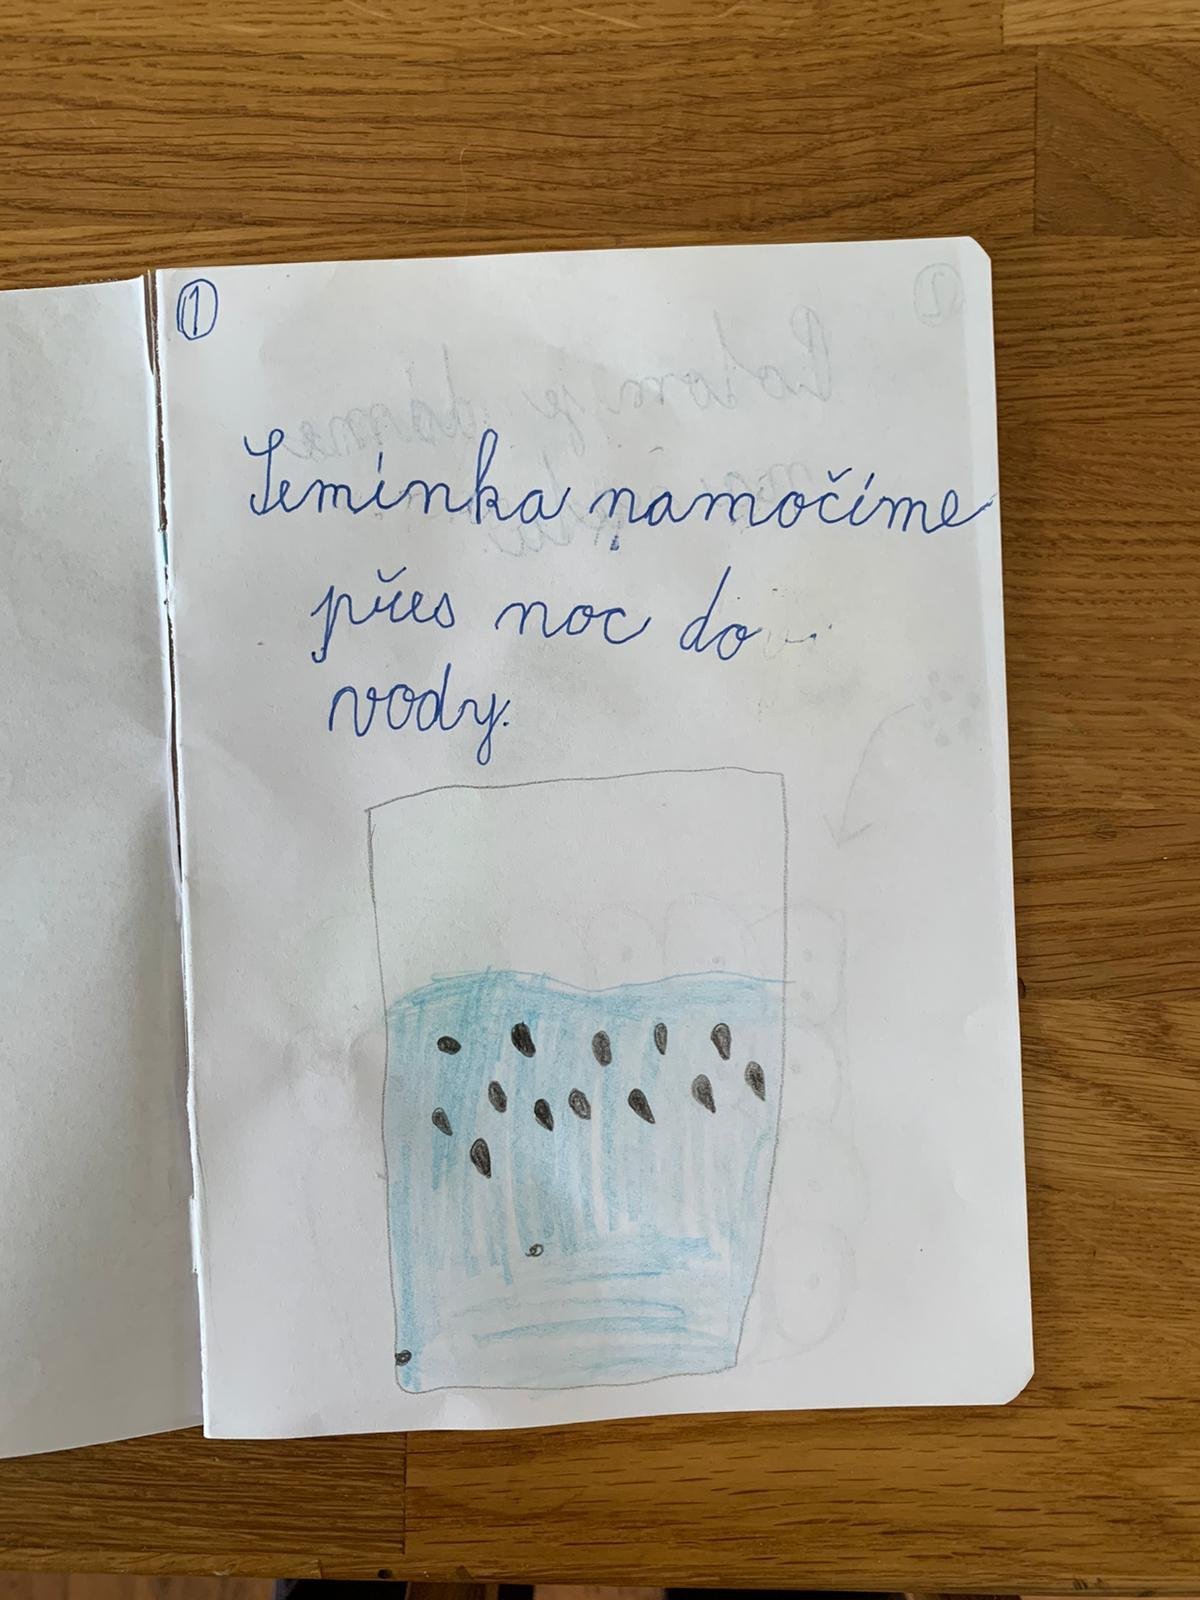 1
Semínka namočíme
přes noc do
vody.